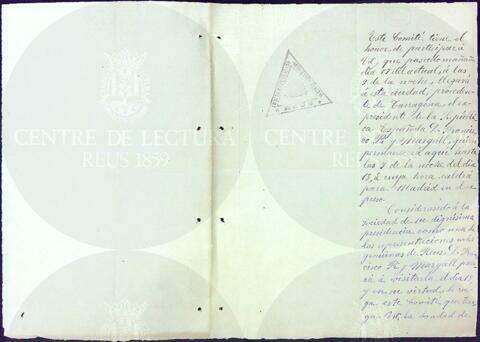 CENTRE DE LECTURA
REUS 1859
CENTRE DE LECTURA
REUS 1859
REUS
Este Comité tiene el
honor de participar á
Vd, que pasado mañana
dia 12 del actual, á las
9 de la noche, llegará
á esta ciudad, proceden-
te de Tarragona, el ex-
presidente de la Repúbli-
ca Española D. Francis-
co Pi y Margall, quien
permanecerá aquí hasta
las 9 de la noche del dia
13, á cuya hora saldrá
para Madrid en el ex-
preso.
Considerando á la
sociedad de su dignísima
presidencia como una de
las representaciones más
genuinas de Reus, D. Fran-
cisco Pi y Margall pasa-
rá á visitarla el dia 13
y en su virtud, le rue-
ga este Comité que ten-
ga Vd, la bondad de